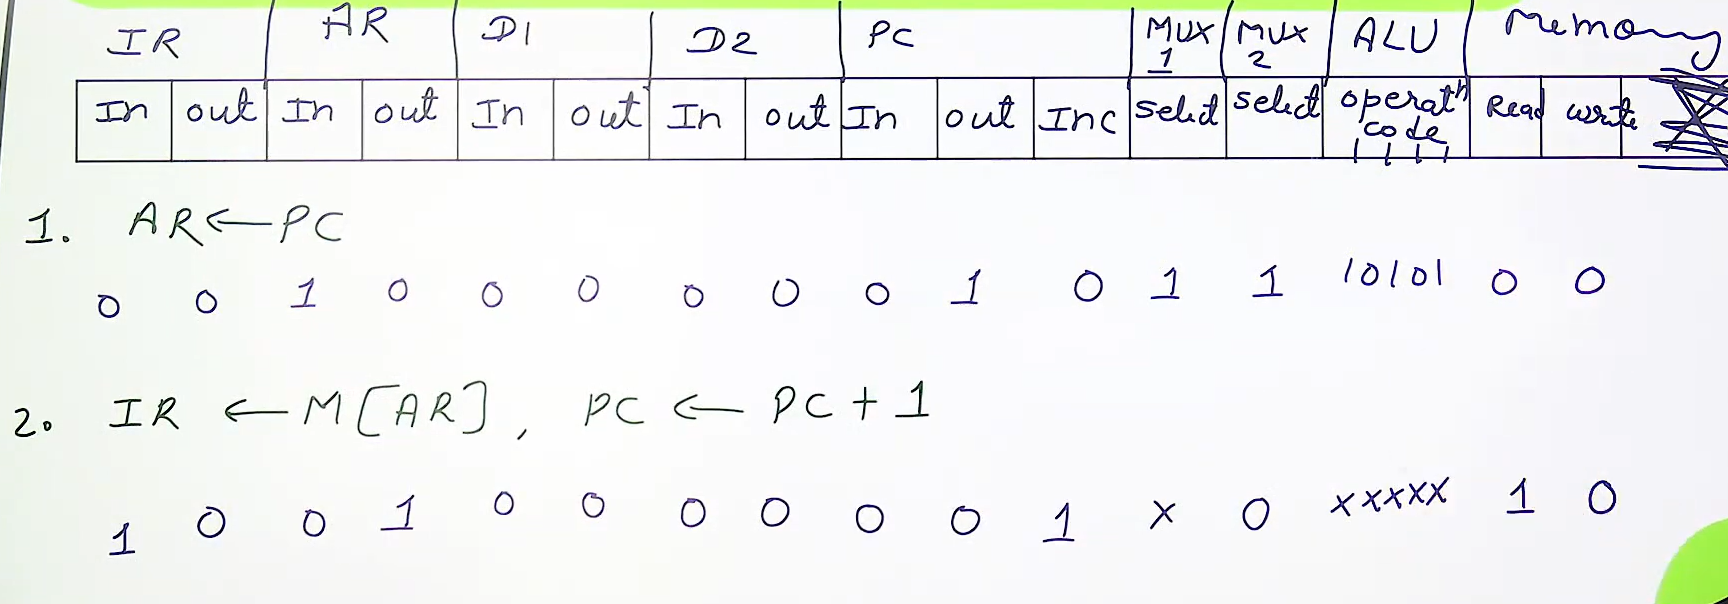 IR AR D1 D2 PC MUX 1 MUX 2 ALU Memory
In out In out In out In out In out Inc select select operatn code Read write
1. AR ← PC
0 0 1 0 0 0 0 0 0 1 0 1 1 10101 0 0
2. IR ← M[AR], PC ← PC + 1
1 0 0 1 0 0 0 0 0 0 1 x 0 xxxxx 1 0